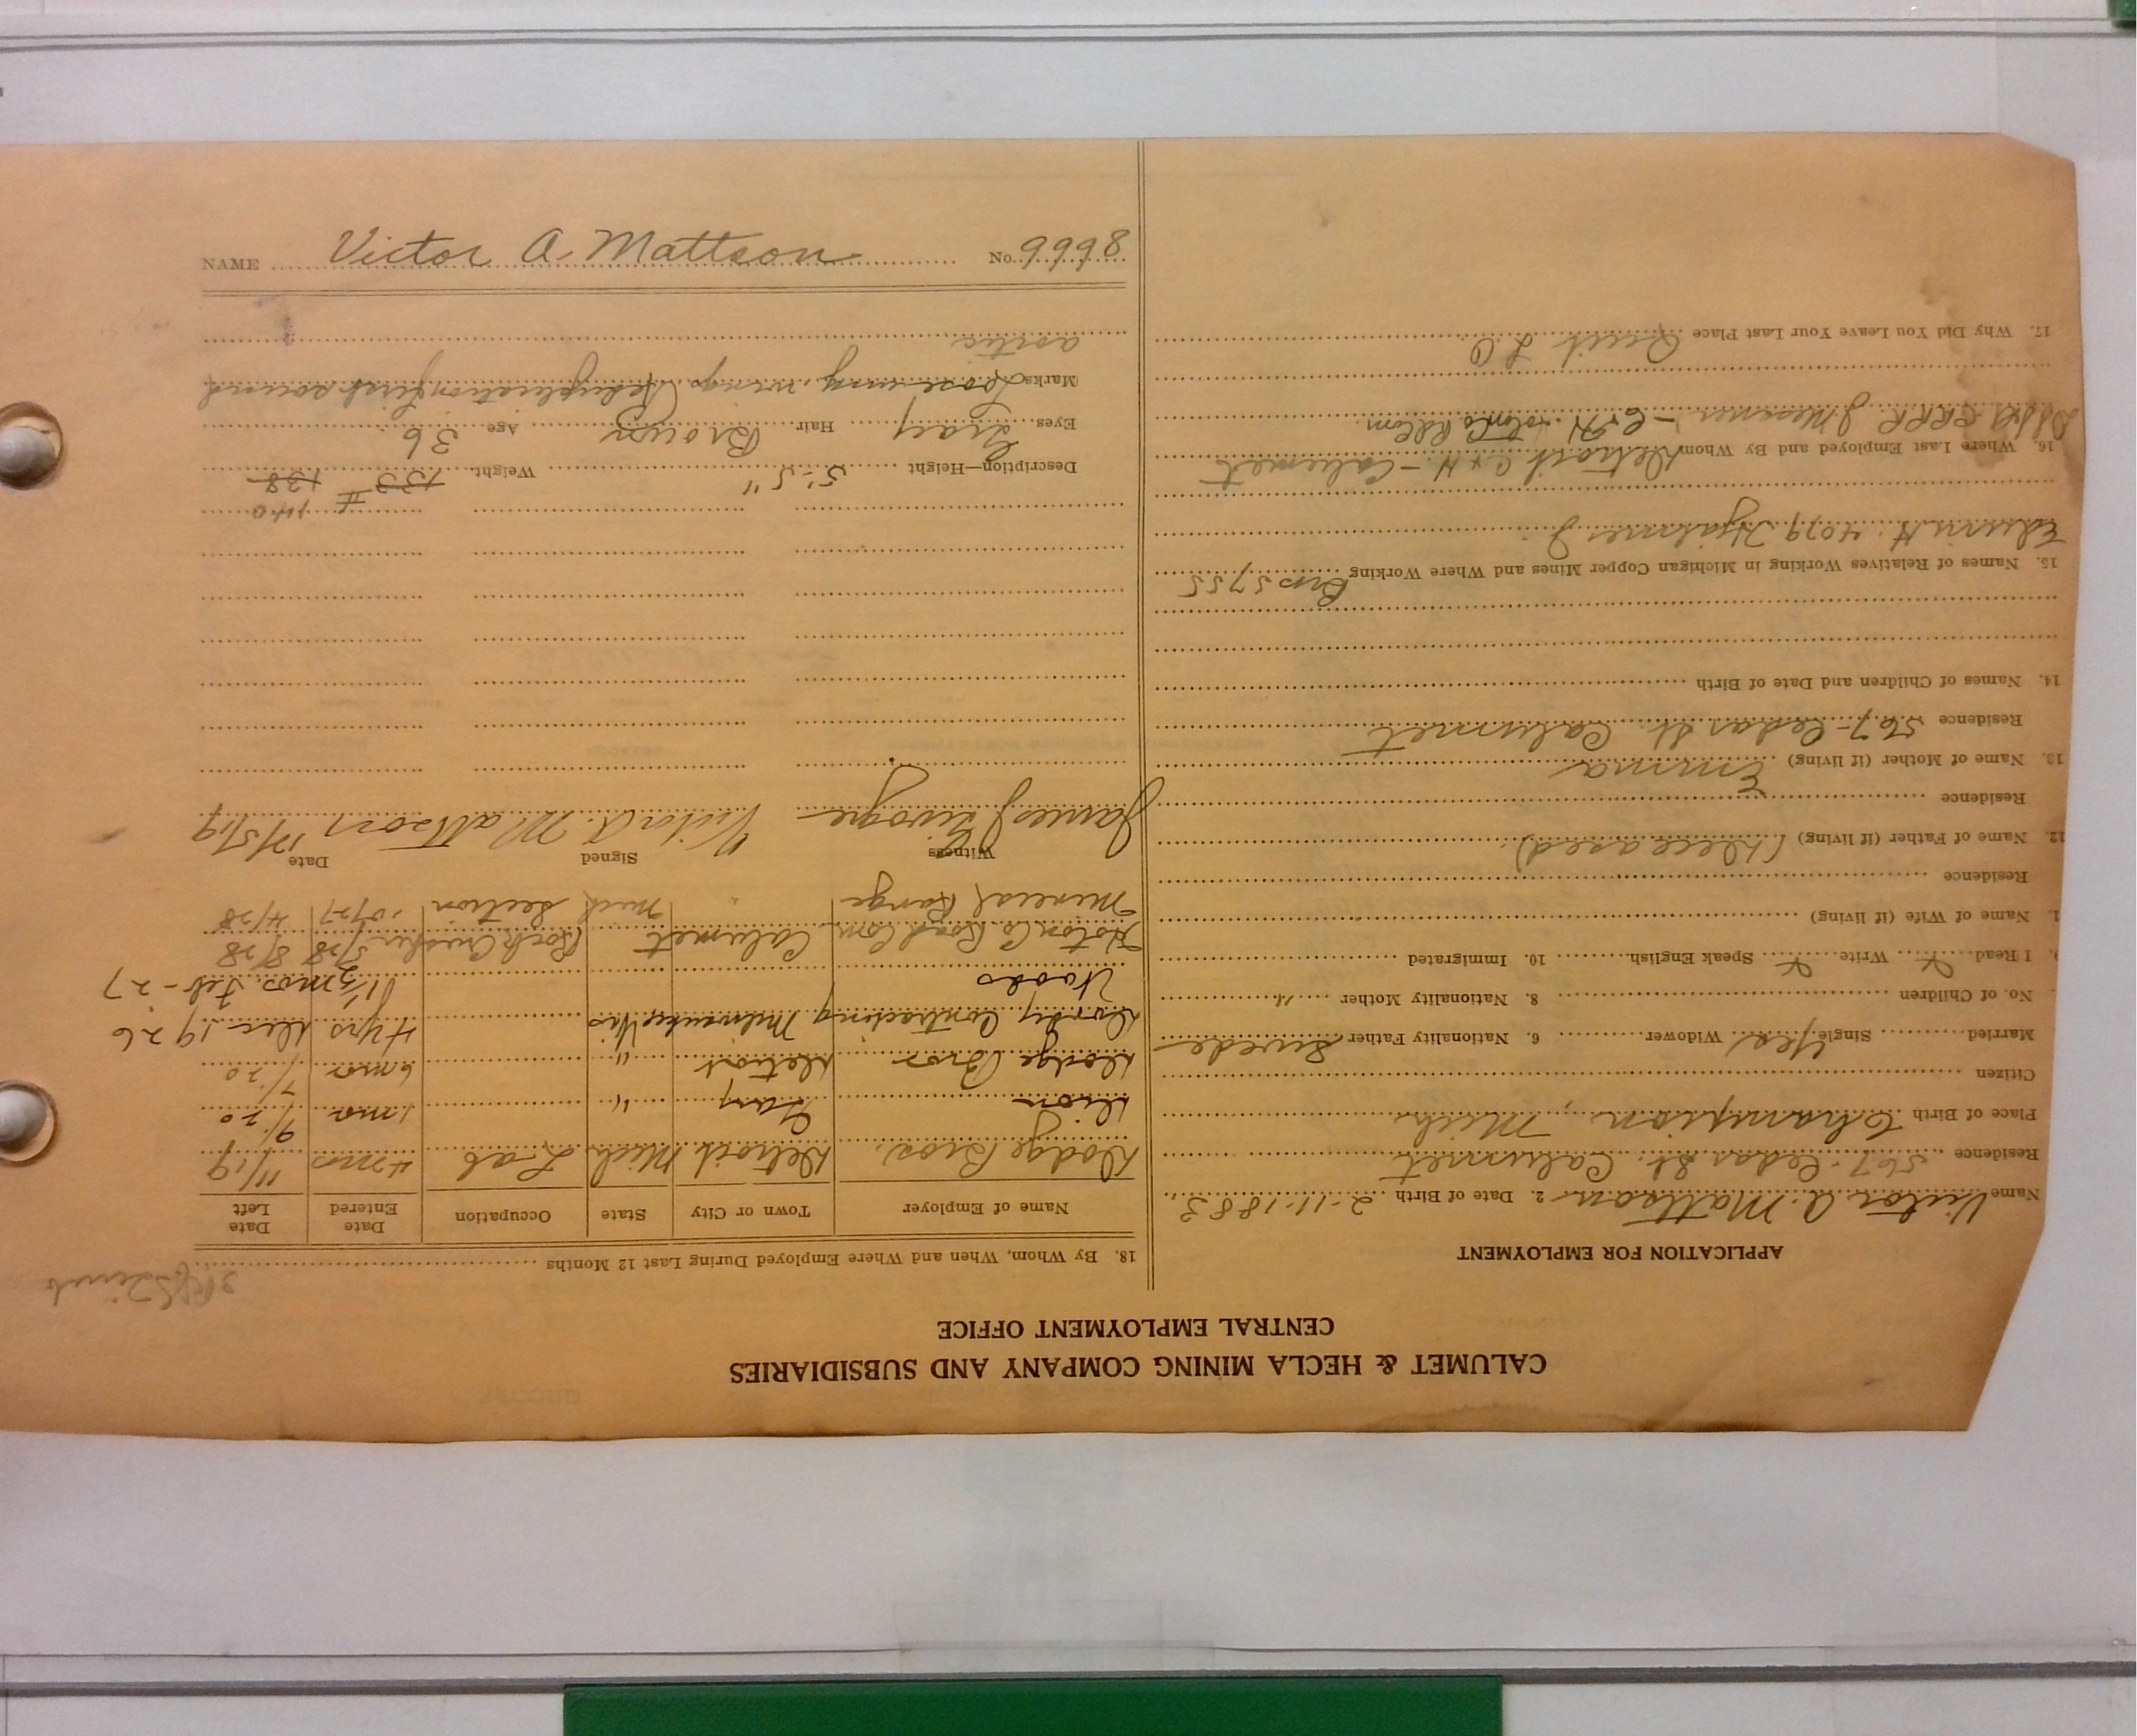 CALUMET & HECLA MINING COMPANY AND SUBSIDIARIES
CENTRAL EMPLOYMENT OFFICE
APPLICATION FOR EMPLOYMENT
Name Victor A. Mattson 2. Date of Birth 2-11-1883
Residence 567-Cedar St. Calumet
Place of Birth Champion, Mich
Citizen
Married Single Yes Widower 6. Nationality Father Swede
No. of Children 8. Nationality Mother "
9. I Read X Write X Speak English 10. Immigrated
1. Name of Wife (if living)
Residence
12. Name of Father (if living) (Deceased)
Residence
13. Name of Mother (if living) Emma
Residence 567-Cedar St. Calumet
14. Names of Children and Date of Birth
15. Names of Relatives Working in Michigan Copper Mines and Where Working Bro 5755
Edwin H. 4079 Hjalmer J.
16. Where Last Employed and By Whom Detroit C & H - Calumet
C & H Hoton Co Rd Com.
17. Why Did You Leave Your Last Place Quit L O
18. By Whom, When and Where Employed During Last 12 Months
Name of Employer Town or City State Occupation Date Entered Date Left
Dodge Bros. Detroit Mich Lab 4 mos 11/19
Gary " 1 mo 9/20
Dodge Bros Detroit " 6 mos 7/20
Contracting Milwaukee Wis 4 yrs Dec 1926
Woods 1 1/2 mos. Feb-27
Hoton Co. Road Com. Calumet Rock Crusher 5/28 8/28
Mineral Range " Mich Section 10/27 4/28
Witness Signed Date
James J Victor A. Mattson 12/5/19
140
Description—Height 5'-5" Weight 133 # 138
Eyes Gray Hair Brown Age 36
Marks Loose ing. rings. Reduplication first sound
aortic
NAME Victor A. Mattson No. 9998